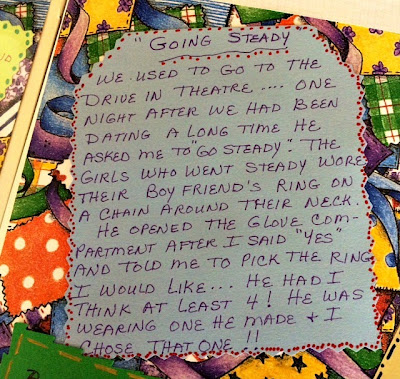 "GOING STEADY
WE USED TO GO TO THE
DRIVE IN THEATRE.... ONE
NIGHT AFTER WE HAD BEEN
DATING A LONG TIME HE
ASKED ME TO "GO STEADY". THE
GIRLS WHO WENT STEADY WORE
THEIR BOY FRIEND'S RING ON
A CHAIN AROUND THEIR NECK.
HE OPENED THE GLOVE COM-
PARTMENT AFTER I SAID "YES"
AND TOLD ME TO PICK THE RING
I WOULD LIKE... HE HAD I
THINK AT LEAST 4! HE WAS
WEARING ONE HE MADE & I
CHOSE THAT ONE !!